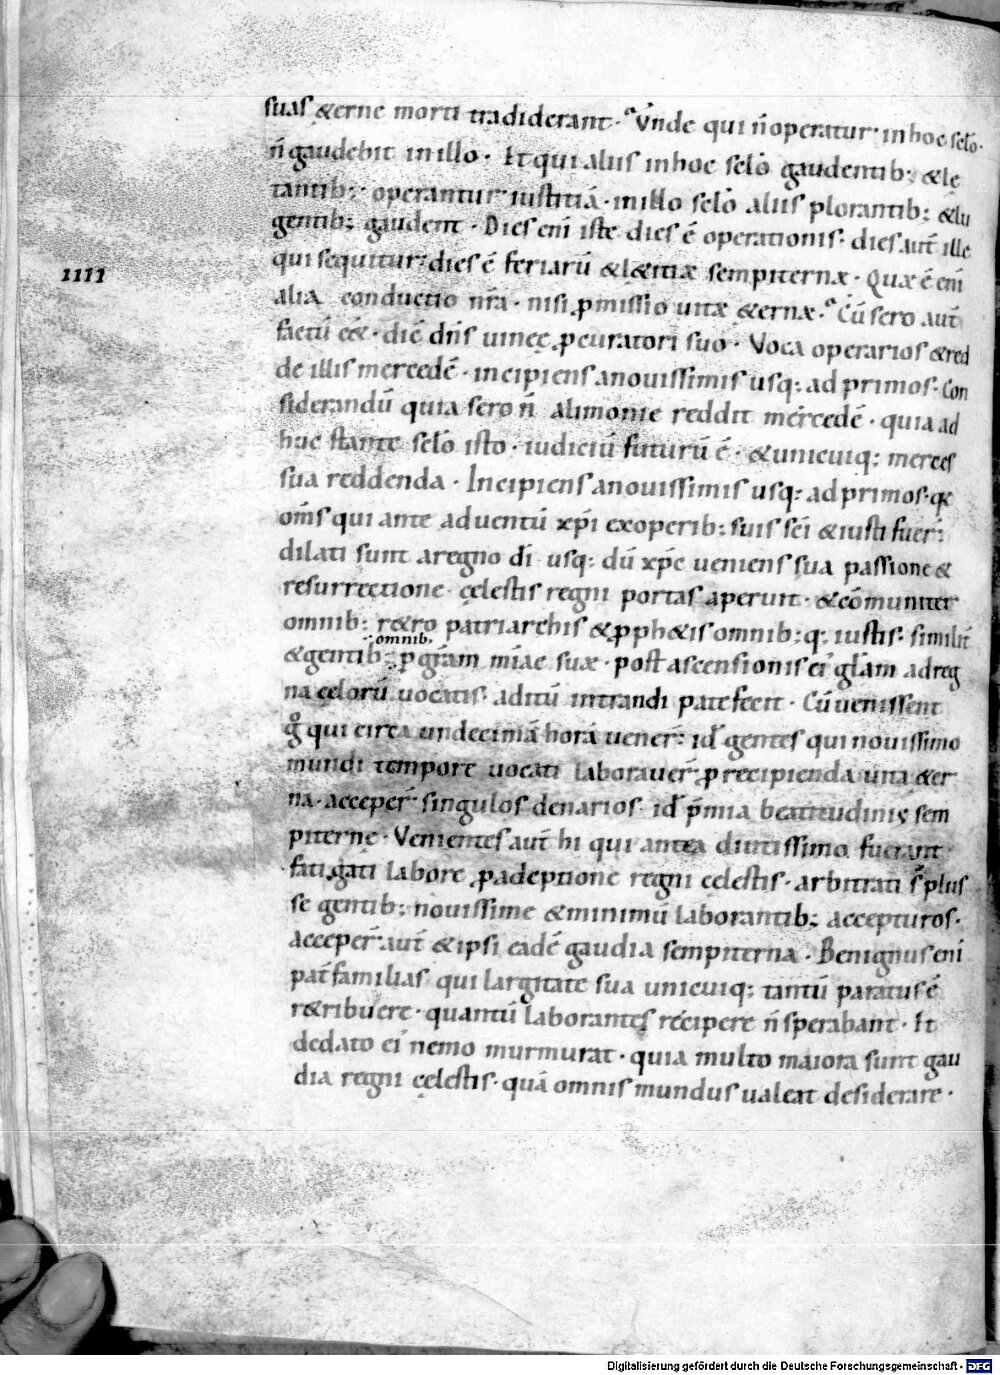 suas &erne morti tradiderant. Vnde qui n̄ operatur in hoc sc̄lo.
n̄ gaudebit in illo. Et qui aliis in hoc sc̄lo gaudentib; & le
tantib; operantur iustitiā. in illo sc̄lo aliis plorantib; & lu
gentib; gaudent. Dies eni iste dies ē operationis. dies aut̄ ille
IIII
qui sequitur dies ē feriarū & l&itiæ sempiternæ. Quæ ē eni
alia conductio nr̄a. nisi ꝓmissio uitæ &ernæ. Cū sero aut̄
factū ēē. dic̄ dn̄s uineę ꝓcuratori suo. Voca operarios & red
de illis mercedē. incipiens a nouissimis usq; ad primos. Con
siderandū quia sero n̄ alimonie reddit mercedē. quia ad
huc stante sc̄lo isto. iudiciū futurū ē. & unicuiq; merces
sua reddenda. Incipiens a nouissimis usq; ad primos. qæ
om̄s qui ante aduentū xp̄i ex operib; suis sc̄i & iusti fuer̄
dilati sunt a regno dī usq; dū xp̄c ueniens sua passione &
resurrectione cęlestis regni portas aperuit. & cōmuniter
omnib; r&ro patriarchis & ꝓph&is omnib; q; iustis. simılit̄
omnib.
& gentib; ꝑ gr̄am m̄iae suæ. post ascensionis eı̄ gl̄am ad reg
na cęlorū uocatis. aditū intrandi patefecit. Cū uenissent
g̊ qui circa undecimā horā uener̄. id̄ gentes qui nouissimo
mundi tempore uocati laborauer̄ ꝓ recipienda uita &er
na. acceper̄ singulos denarios. id̄ p̄mia beatitudinis sem
piternę. Venientes aut̄ hi qui antea diutissimo fuerant
fatigati labore ꝓ adeptione regni cęlestis. arbitrati s̄ plus
se gentib; nouissime & minimū laborantib; accepturos.
acceper̄ aut̄ & ipsi eadē gaudia sempiterna. Benignus eni
pat̄familias qui largitate sua unicuiq; tantū paratus ē
r&ribuere. quantū laborantes recipere n̄ sperabant. Et
de dato eı̄ nemo murmurat. quia multo maiora sunt gau
dia regni cęlestis. quā omnis mundus ualeat desiderare.
Digitalisierung gefördert durch die Deutsche Forschungsgemeinschaft - DFG